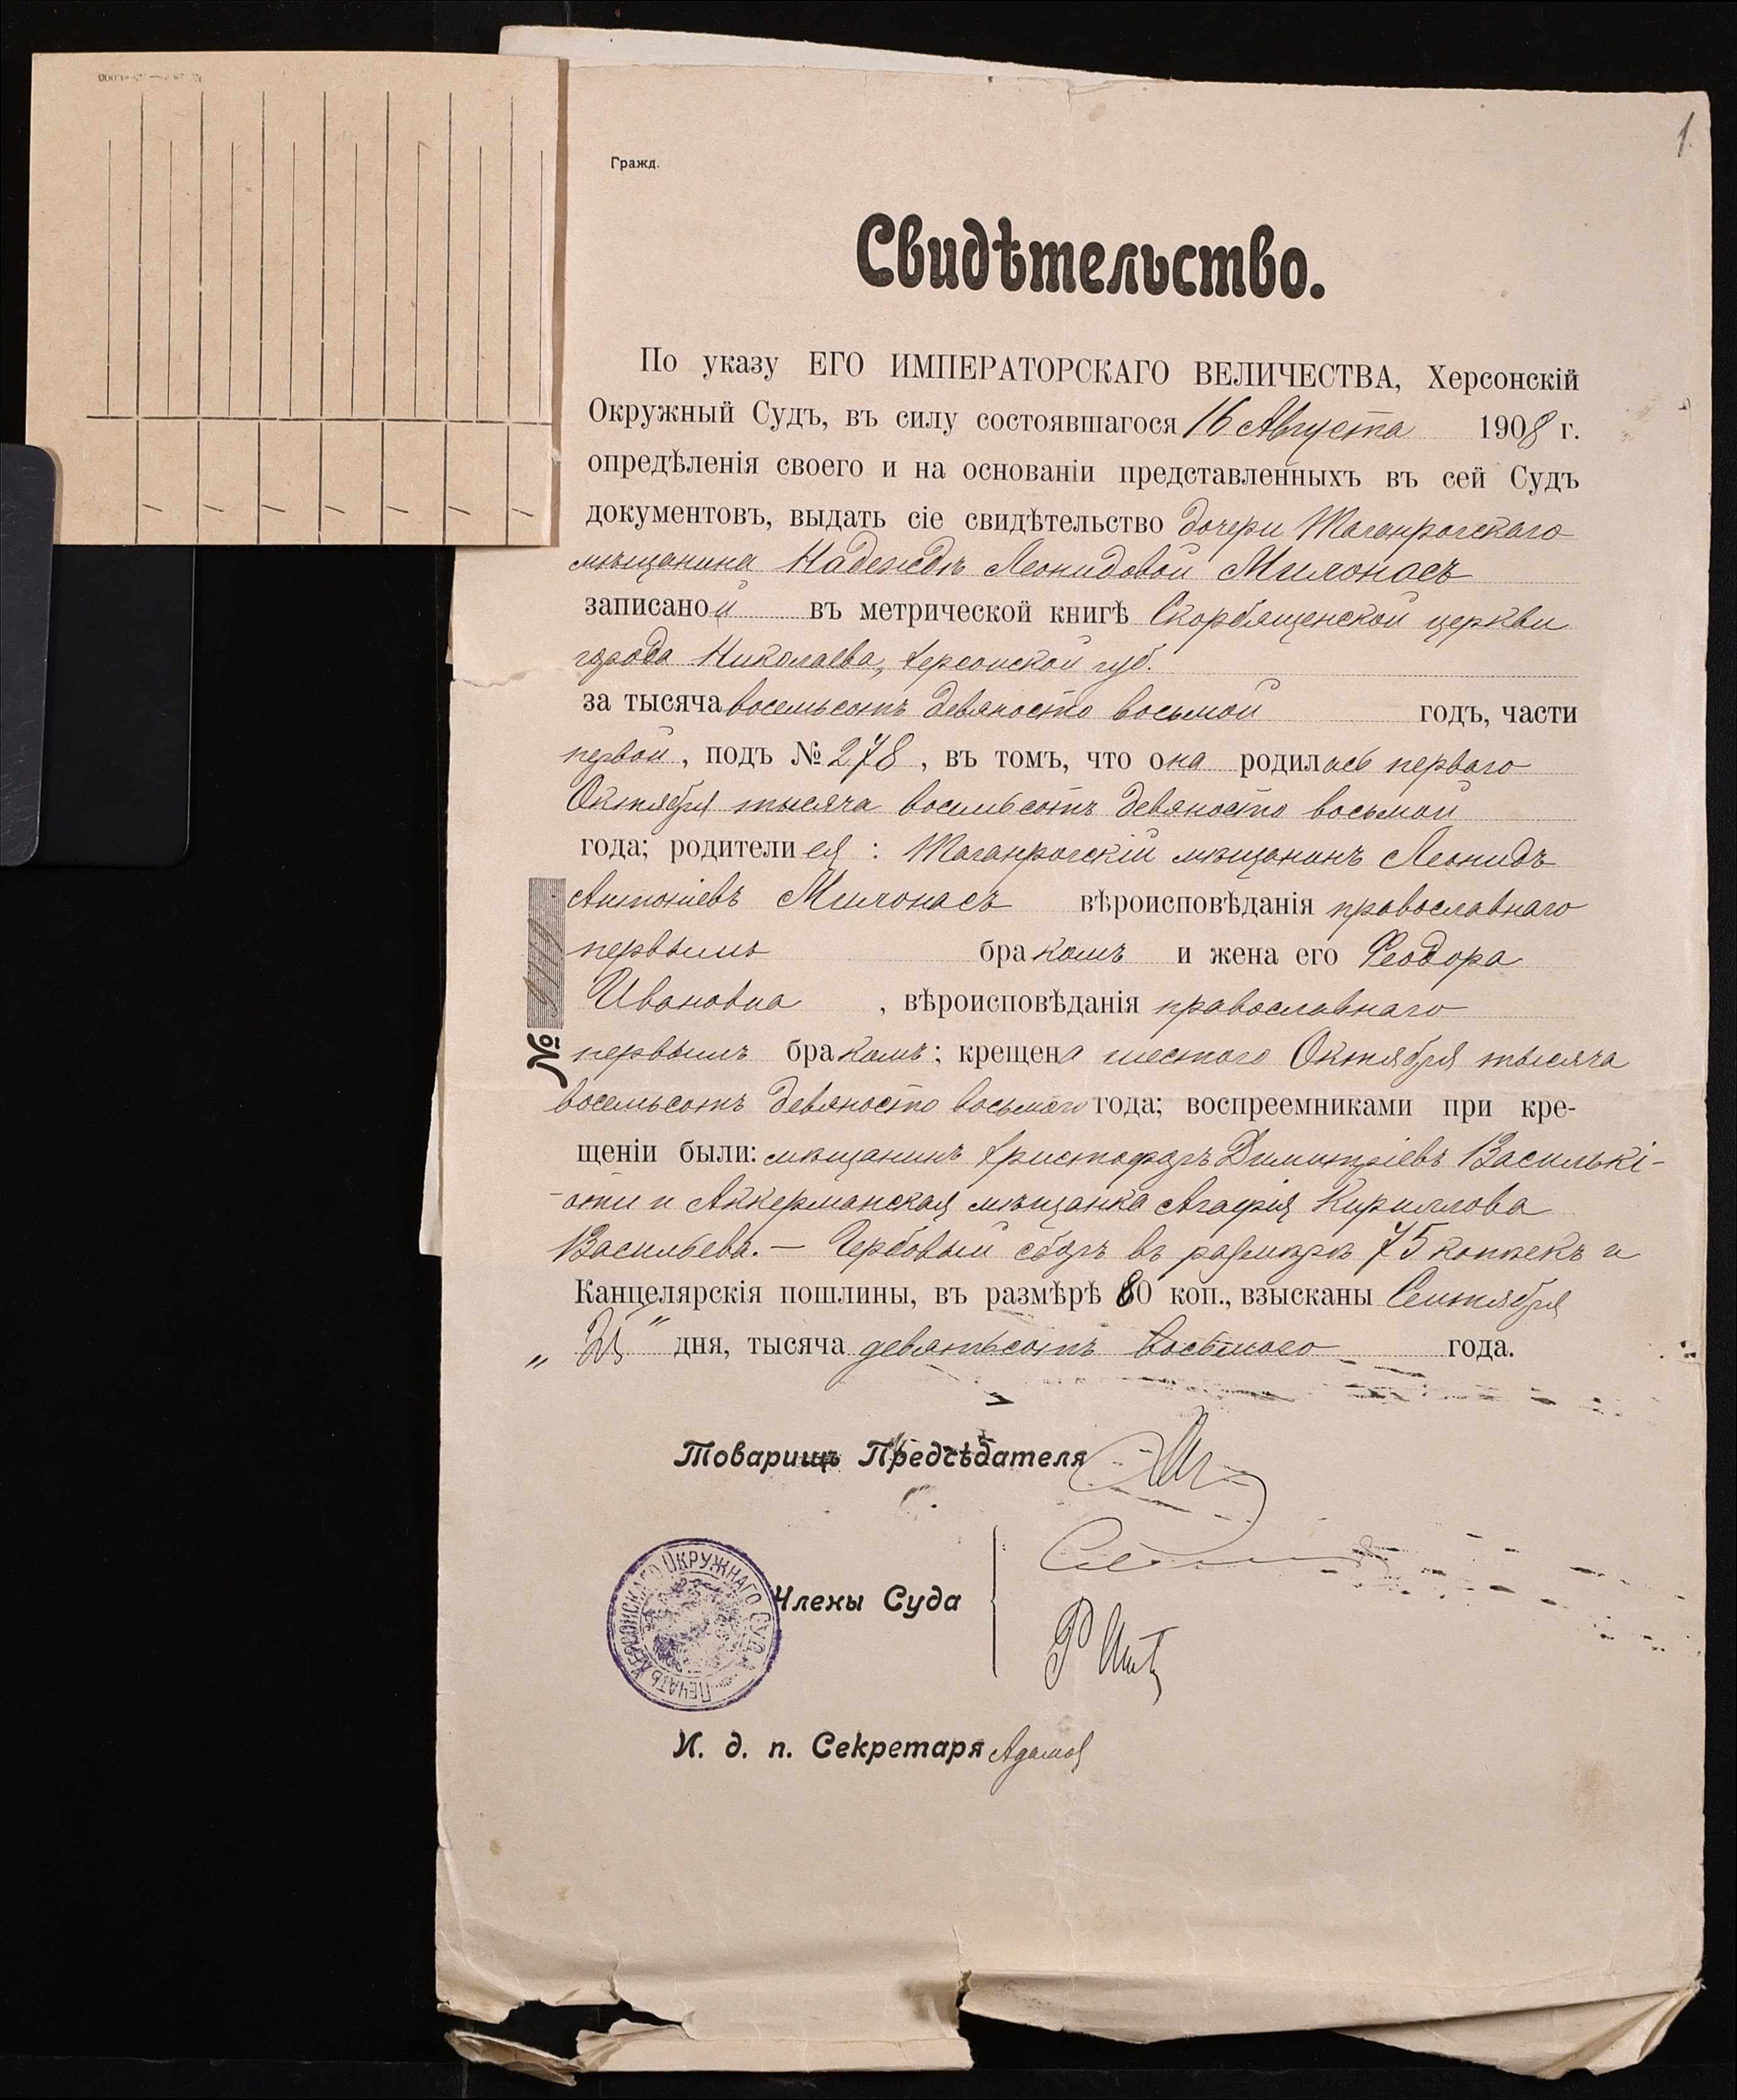 1.
Гражд.
Свидѣтельство.
По указу ЕГО ИМПЕРАТОРСКАГО ВЕЛИЧЕСТВА, Херсонскій
Окружный Судъ, въ силу состоявшагося 16 Августа 1908 г.
опредѣленія своего и на основаніи представленныхъ въ сей Судъ
документовъ, выдать сіе свидѣтельство дочери Таганрогскаго
мѣщанина Надеждѣ Леонидовой Милонасъ
записаной въ метрической книгѣ Скорбященской церкви
города Николаева, Херсонской губ.
за тысяча восемьсотъ девяносто восьмой годъ, части
первой, подъ № 278, въ томъ, что она родилась перваго
Октября тысяча восемьсотъ девяносто восьмой
года; родители ея: Таганрогскій мѣщанинъ Леонидъ
Антоніевъ Милонасъ вѣроисповѣданія православнаго
первымъ бракомъ и жена его Феодора
Ивановна, вѣроисповѣданія православнаго
первымъ бракомъ; крещена шестого Октября тысяча
восемьсотъ девяносто восьмого года; воспреемниками при кре-
щеніи были: мѣщанинъ Христофоръ Димитріевъ Василькі-
-оти и Аккерманская мѣщанка Агафія Кириллова
Васильева. — Гербовый сборъ въ размѣрѣ 75 копѣекъ и
Канцелярскія пошлины, въ размѣрѣ 80 коп., взысканы Сентября
„ " дня, тысяча девятьсотъ восьмого года.
№
Товарищъ Предсѣдателя
Члены Суда
ПЕЧАТЬ ХЕРСОНСКАГО ОКРУЖНАГО СУДА
И. д. п. Секретаря Адамов